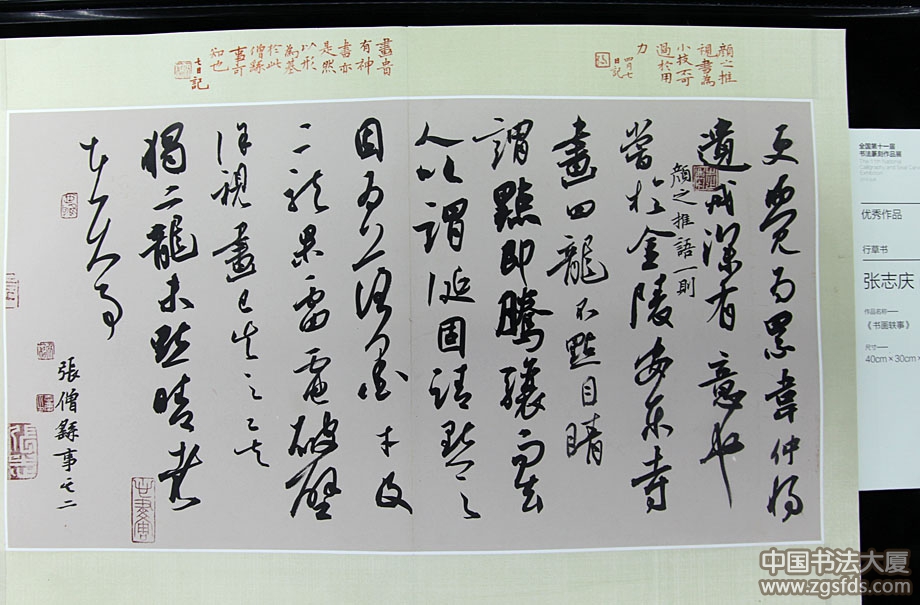 顏之推
視書為
小技不可
過於用
力
四月七
日記
畫貴
有神
書亦
是然
以形
為基
於此
僧繇
事可
知也
七日記
更覺為累韋仲將
遺戒深有意也
顏之推語一則
嘗於金陵安樂寺
畫四龍不點目睛
謂點即騰驤而去
人以謂誕固請點之
因為落墨才及
二龍果雷電破壁
徐視畫已失之矣
獨二龍未點睛者
張僧繇事之二
全国第十一届
书法篆刻作品展
优秀作品
行草书
张志庆
作品名称—
《书画轶事》
尺寸—
40cm×30cm×
中国书法大厦
www.zgsfds.com